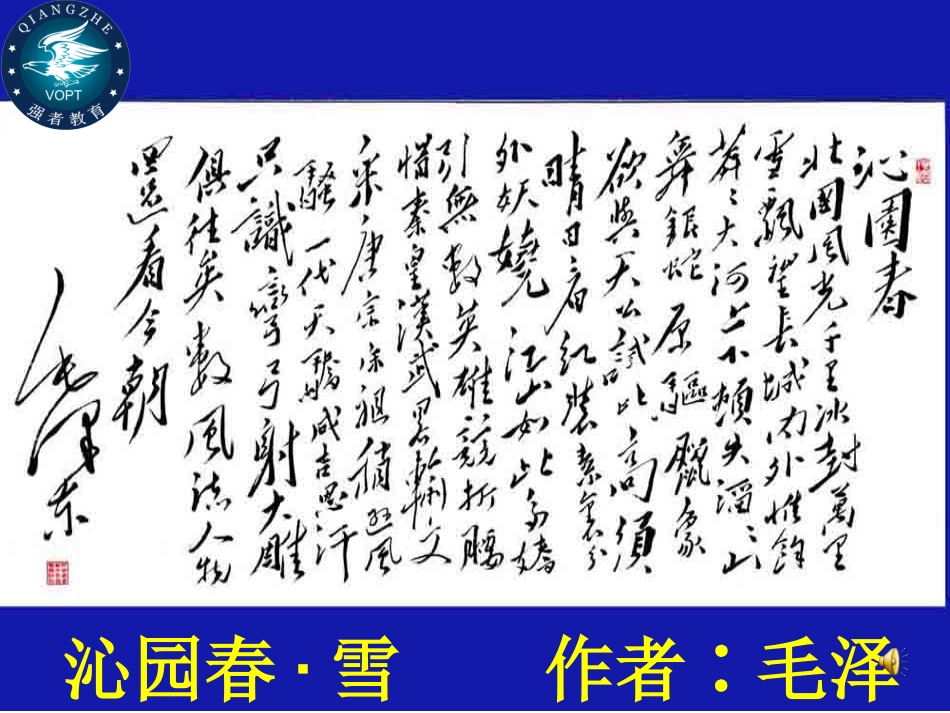 QIANGZHE
VOPT
强者教育
沁園春
北國風光千里冰封萬里
雪飄望長城內外惟餘
莽〻大河上下頓失滔〻山
舞銀蛇原驅臘象
欲與天公試比高須
晴日看紅裝素裹分
外妖嬈江山如此多嬌
引無數英雄競折腰
惜秦皇漢武略輸文
采唐宗宋祖稍遜風
騷一代天驕成吉思汗
只識彎弓射大雕
俱往矣數風流人物
還看今朝
毛澤東
沁园春·雪 作者：毛泽